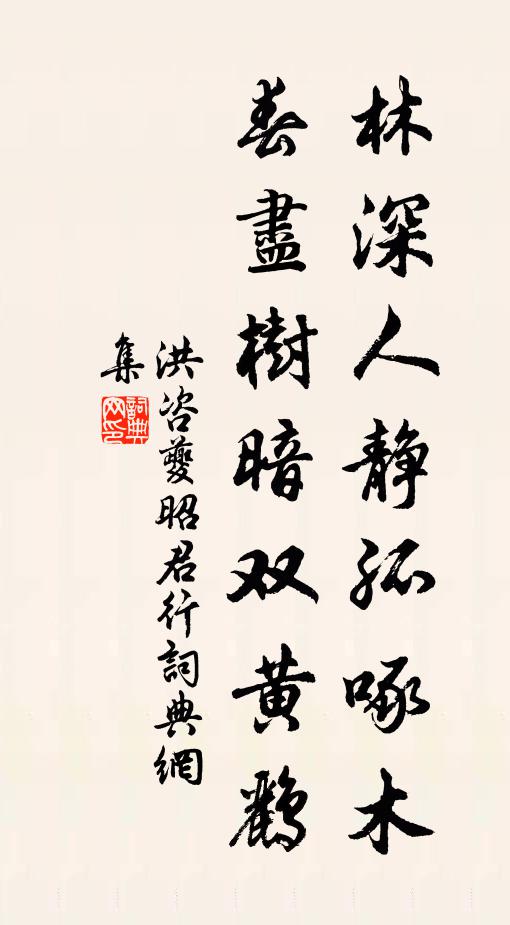 林深人静孤啄木
春盡樹暗双黄鸝
洪咨夔昭君行詞典網
集
詞典
网印